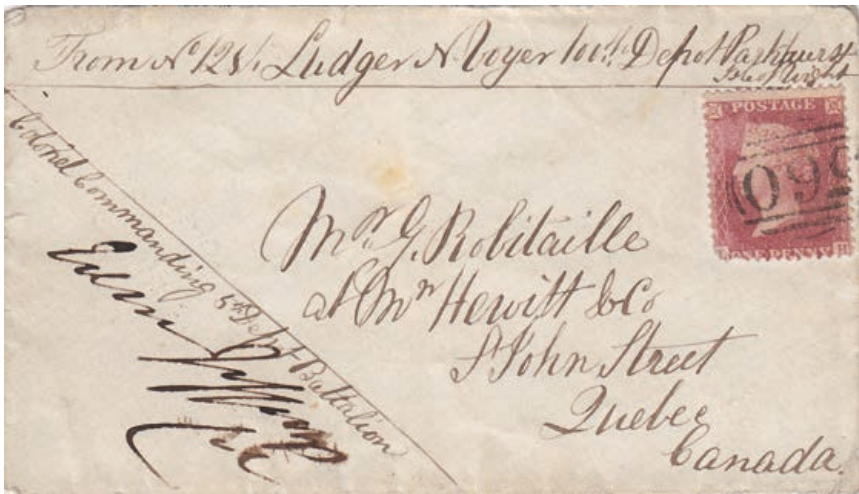 From No 121. Ludger N Voyer 100th Depot Parkhurst
Isle of Wight
POSTAGE
ONE PENNY
H
Colonel Commanding 5th Depot Battalion
Mr. G. Robitaille
at Mr Hewitt & Co
St John Street
Quebec
Canada.